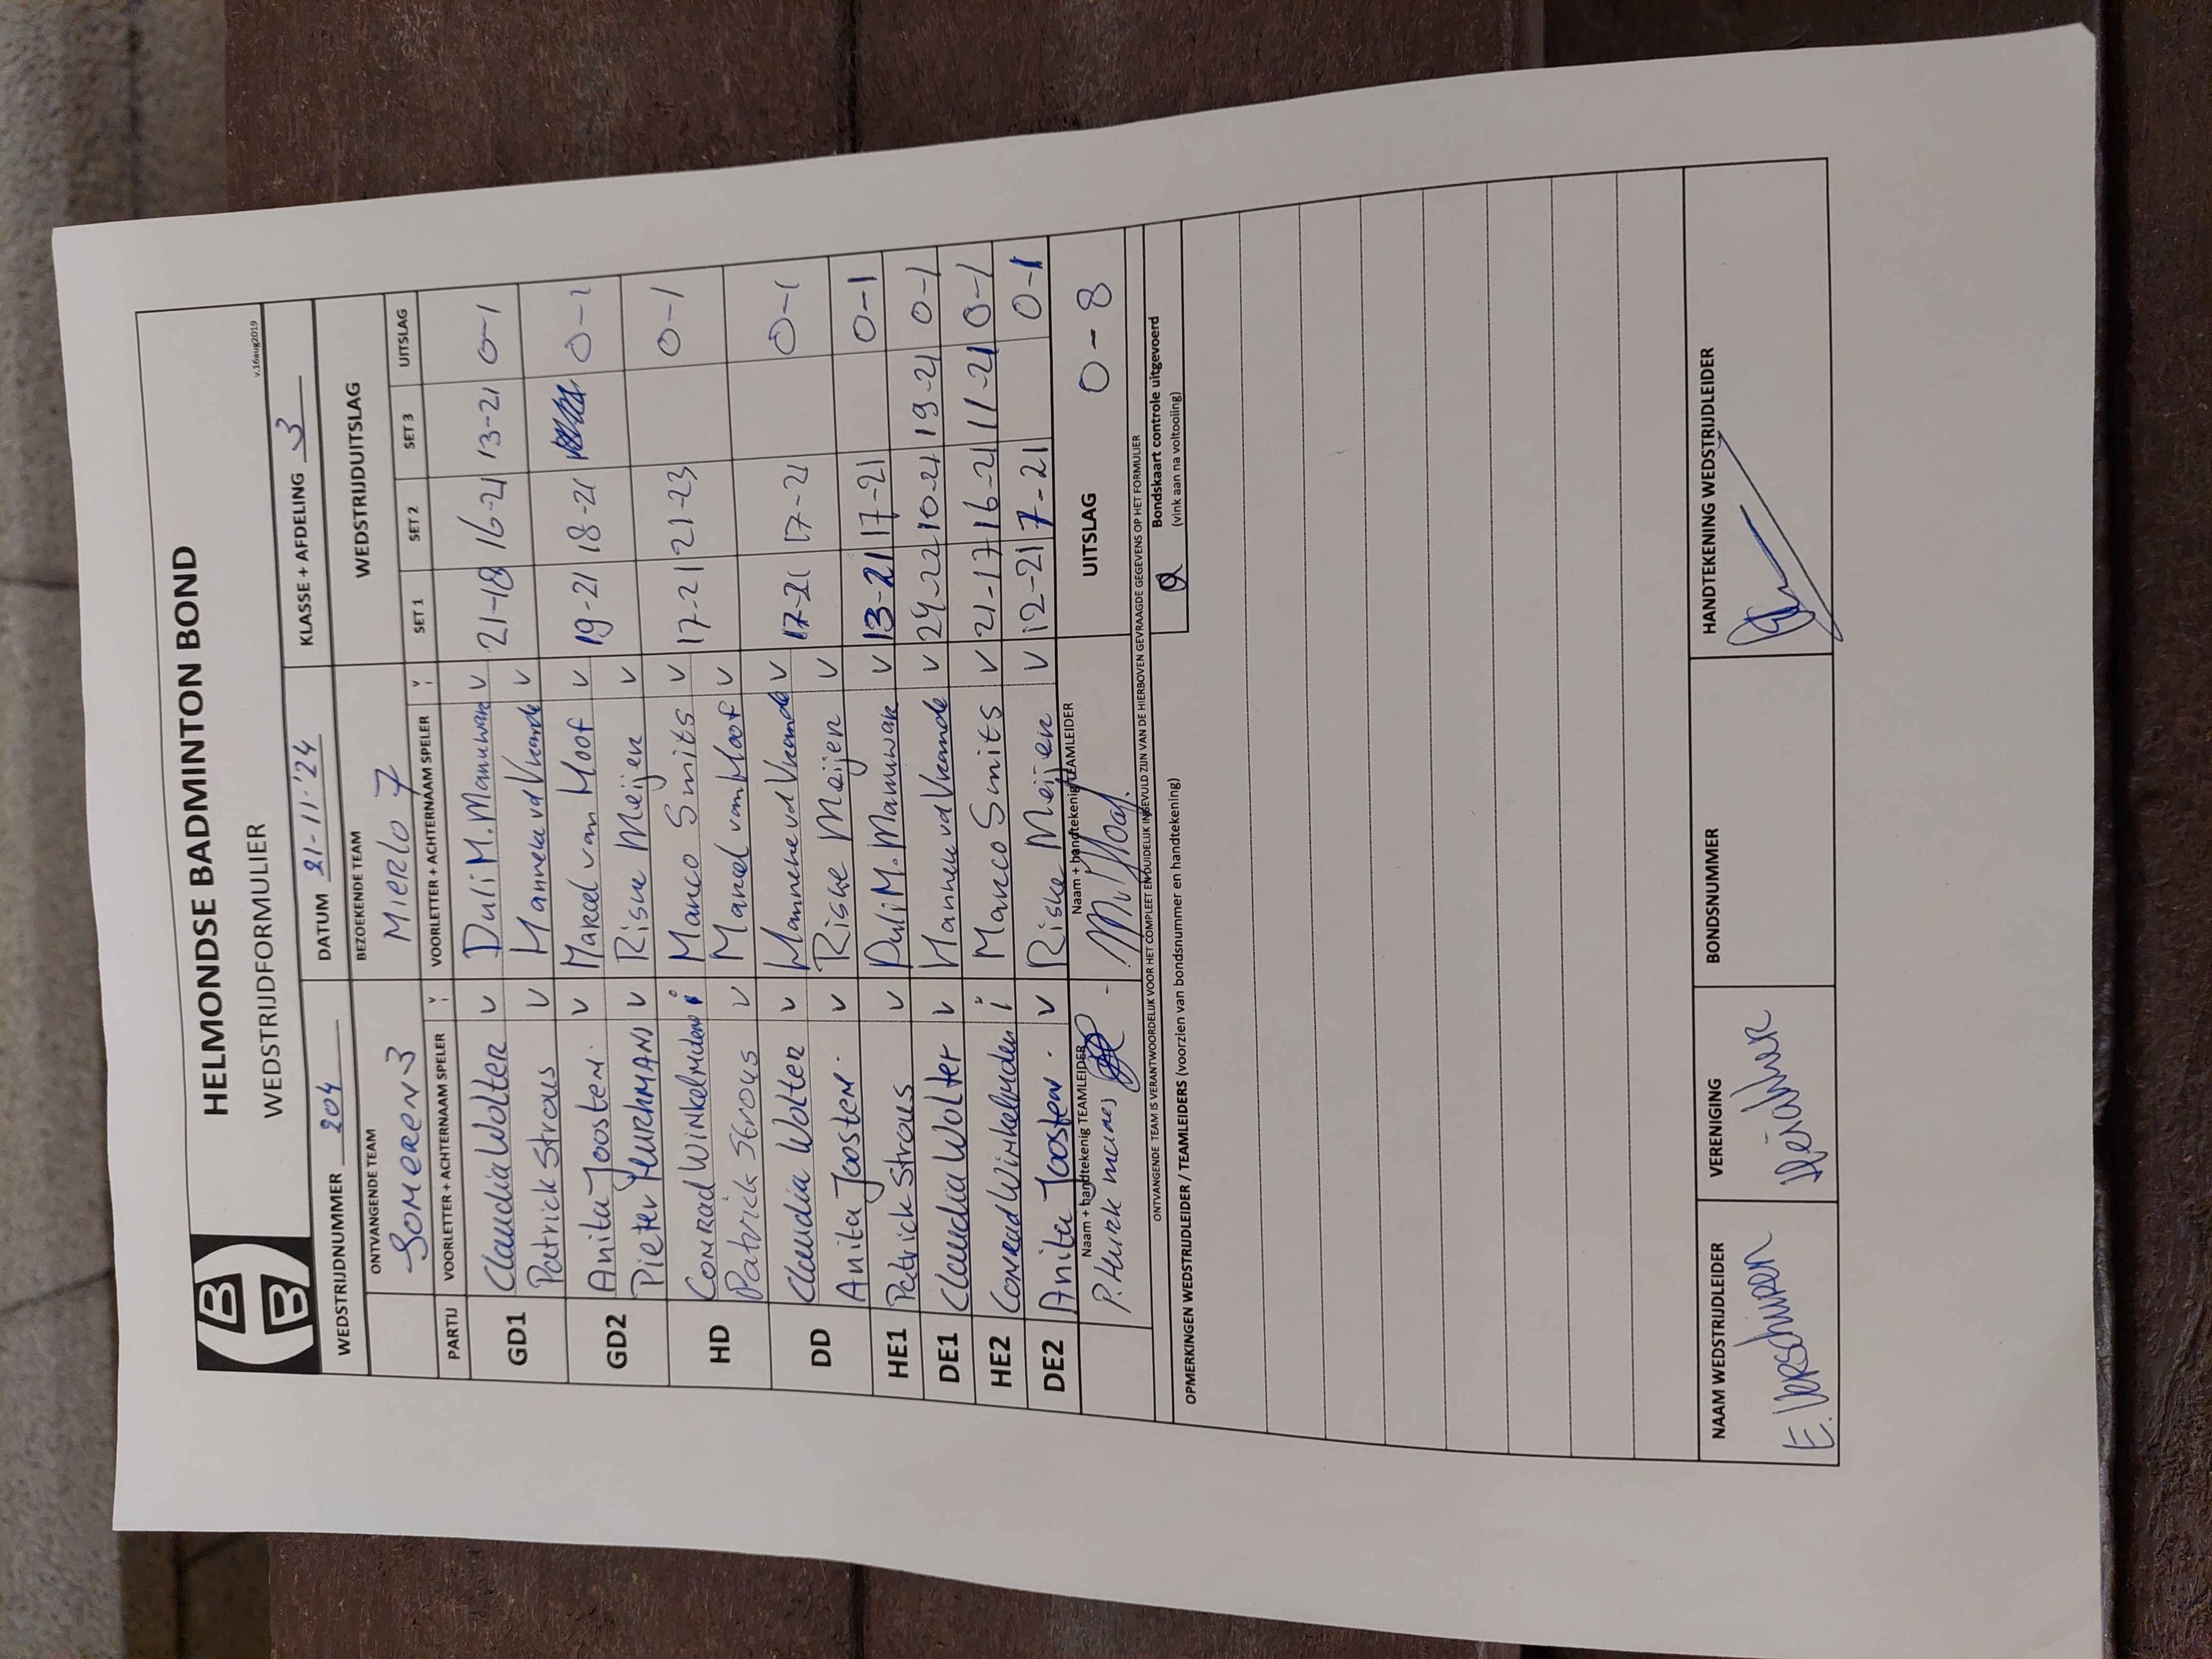 HELMONDSE BADMINTON BOND
WEDSTRIJDFORMULIER
v.16aug2019
WEDSTRIJDNUMMER 204 DATUM 21-11-'24 KLASSE + AFDELING 3
ONTVANGENDE TEAM BEZOEKENDE TEAM WEDSTRIJDUITSLAG
SOMEREN 3 MIERLO 7
PARTIJ VOORLETTER + ACHTERNAAM SPELER V VOORLETTER + ACHTERNAAM SPELER V SET 1 SET 2 SET 3 UITSLAG
GD1 Claudia Wolter V Duli M. Manuwan V 21-18 16-21 13-21 0-1
Patrick Strous V Hanneke vd Vrande V
GD2 Anita Joosten. V Marcel van Hoof V 19-21 18-21 0-1
Pieter HURKMANS V Riske Meijer V
HD Conrad Winkelmolen i Marco Smits V 17-21 21-23 0-1
Patrick Strous V Marcel van Hoof V
DD Claudia Wolter V Hanneke vd Vrande V 17-21 17-21 0-1
Anita Joosten. V Riske Meijer V
HE1 Patrick Strous V Duli M. Manuwan V 13-21 17-21 0-1
DE1 Claudia Wolter V Hanneke vd Vrande V 24-22 10-21 19-21 0-1
HE2 Conrad Winkelmolen i Marco Smits V 21-17 16-21 11-21 0-1
DE2 Anita Joosten. V Riske Meijer V 12-21 7-21 0-1
Naam + handtekenig TEAMLEIDER Naam + handtekenig TEAMLEIDER UITSLAG 0-8
P. Hurkmans
ONTVANGENDE TEAM IS VERANTWOORDELIJK VOOR HET COMPLEET EN DUIDELIJK INGEVULD ZIJN VAN DE HIERBOVEN GEVRAAGDE GEGEVENS OP HET FORMULIER
OPMERKINGEN WEDSTRIJDLEIDER / TEAMLEIDERS (voorzien van bondsnummer en handtekening)
Bondskaart controle uitgevoerd
(vink aan na voltooiing)
NAAM WEDSTRIJDLEIDER VERENIGING BONDSNUMMER HANDTEKENING WEDSTRIJDLEIDER
E. Verschuren